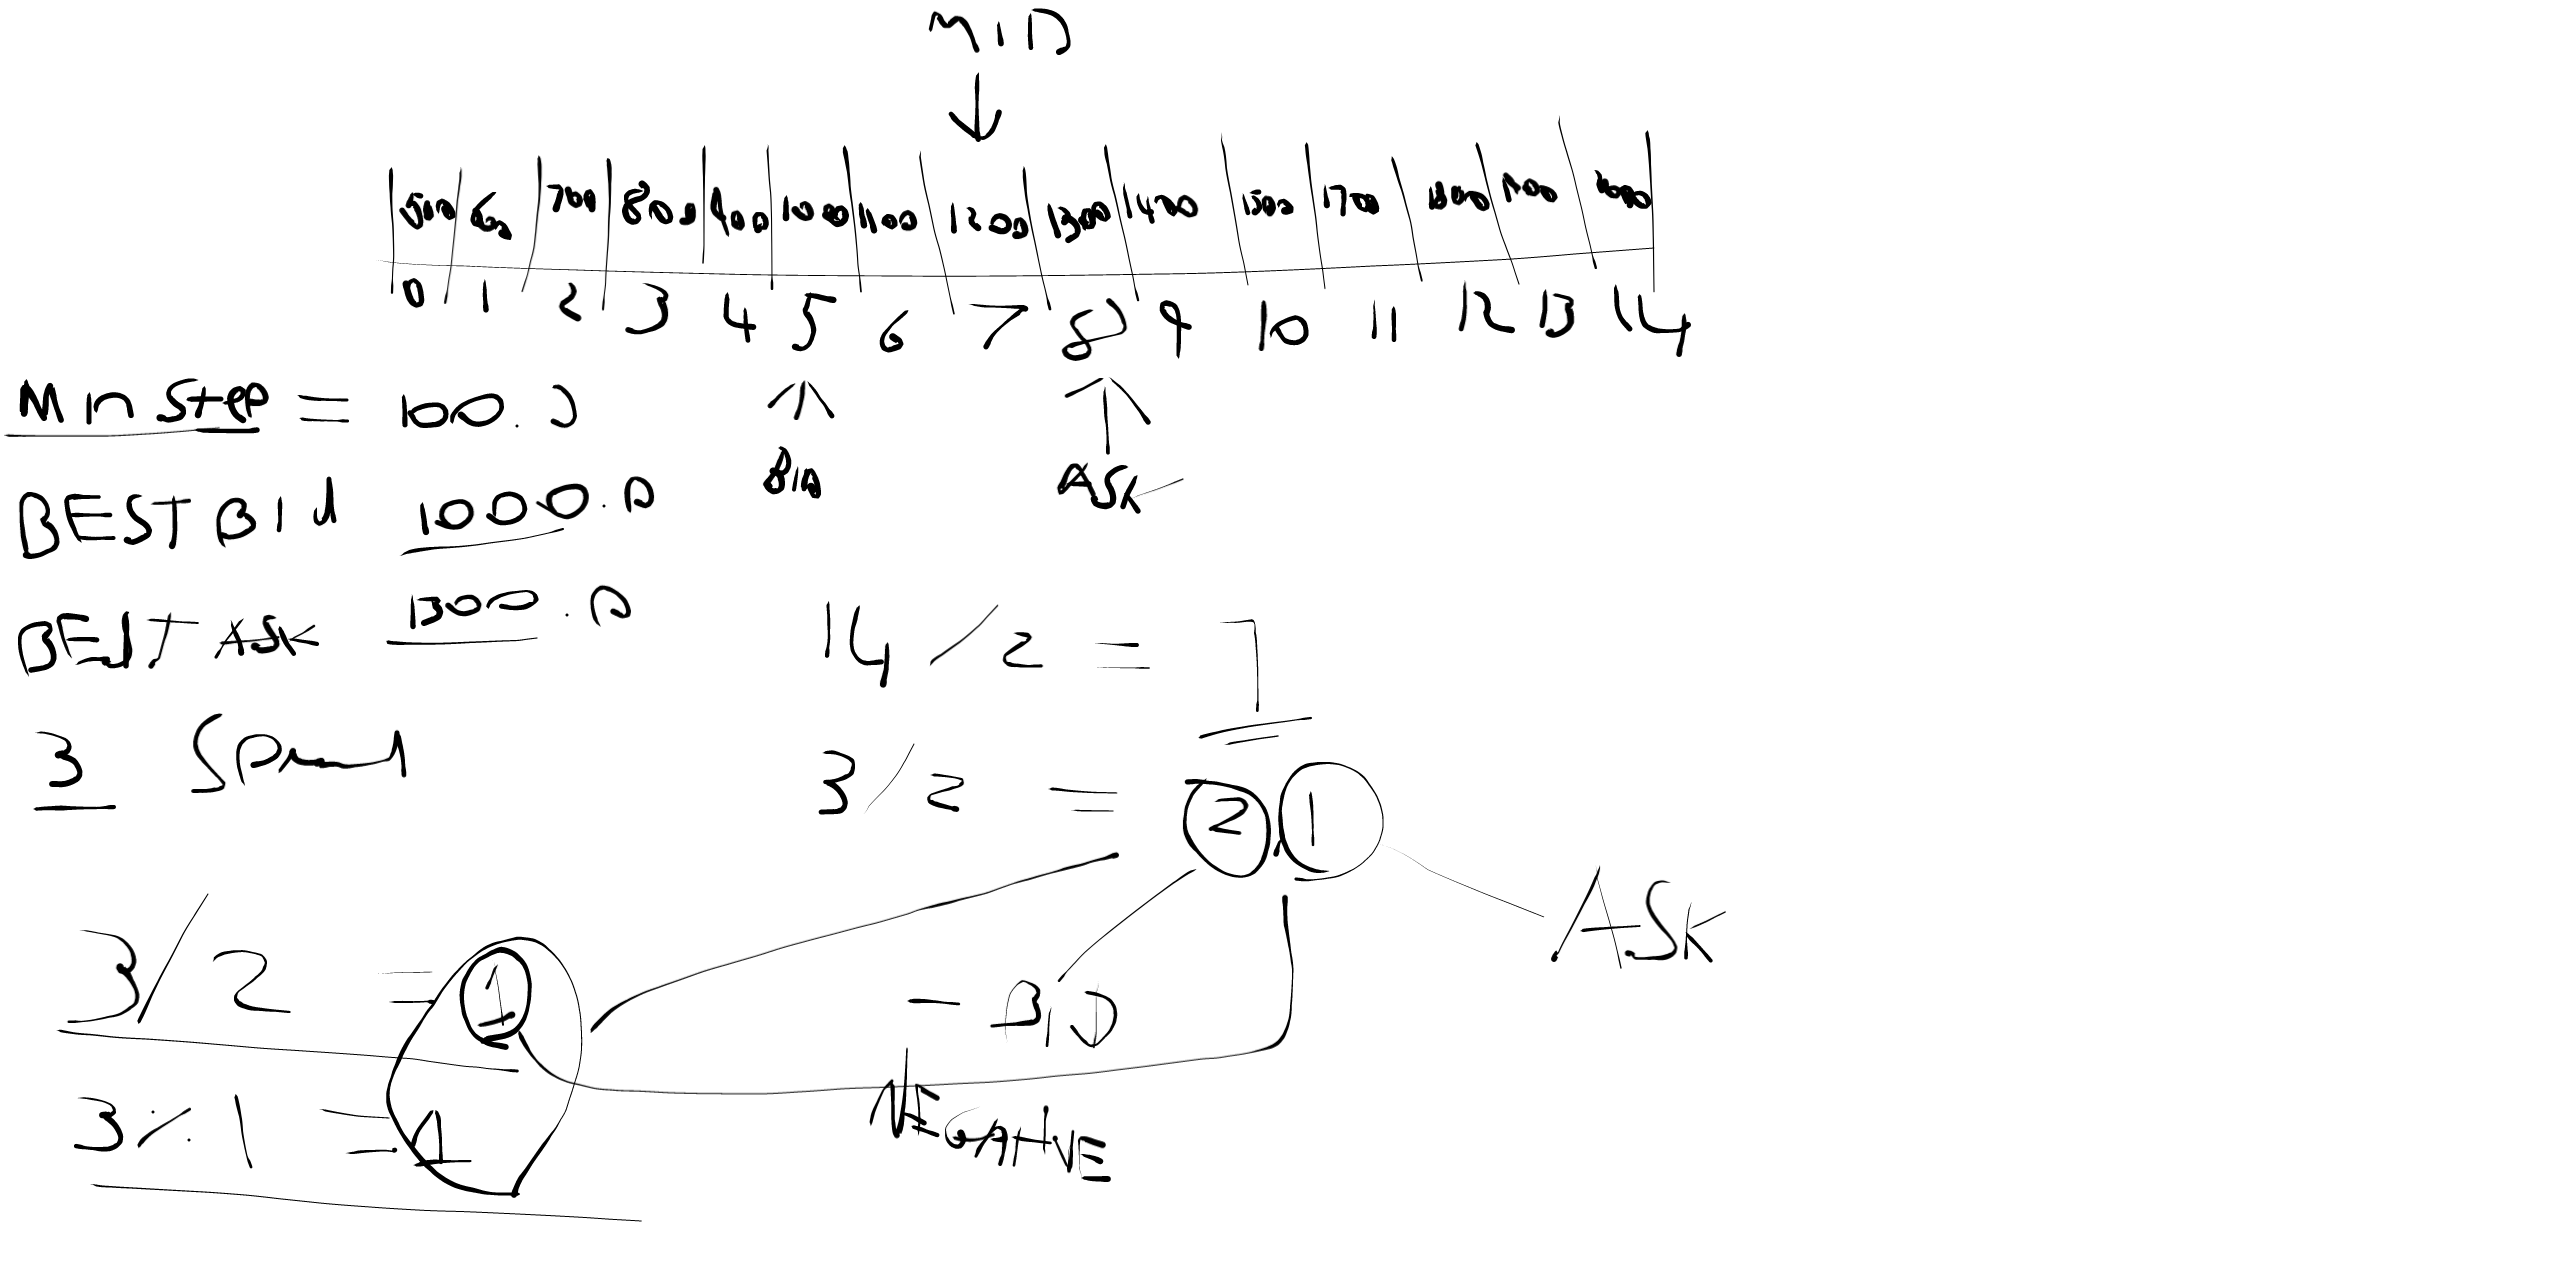 MID
500 600 700 800 900 1000 1100 1200 1300 1400 1500 1700 1800 1900 2000
0 1 2 3 4 5 6 7 8 9 10 11 12 13 14
Min Step = 100.0
BID ASK
BEST BId 1000.0
BEST ASK 1300.0
14/2 = 7
3 Spread
3/2 = 2,1
ASK
3/2 = 1
- BID
NEGATIVE
3%1 = 1